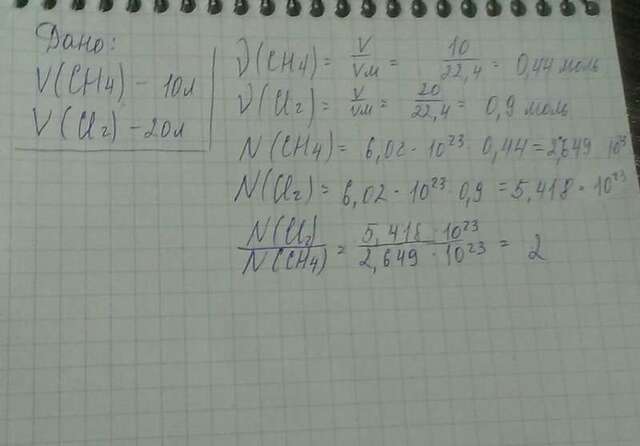 Дано:
V(CH4) - 10л
V(Cl2) - 20л
ν(CH4) = V/Vм = 10/22,4 = 0,44 моль
ν(Cl2) = V/Vм = 20/22,4 = 0,9 моль
N(CH4) = 6,02 · 10²³ · 0,44 = 2,649 · 10²³
N(Cl2) = 6,02 · 10²³ · 0,9 = 5,418 · 10²³
N(Cl2)/N(CH4) = 5,418 · 10²³/2,649 · 10²³ = 2